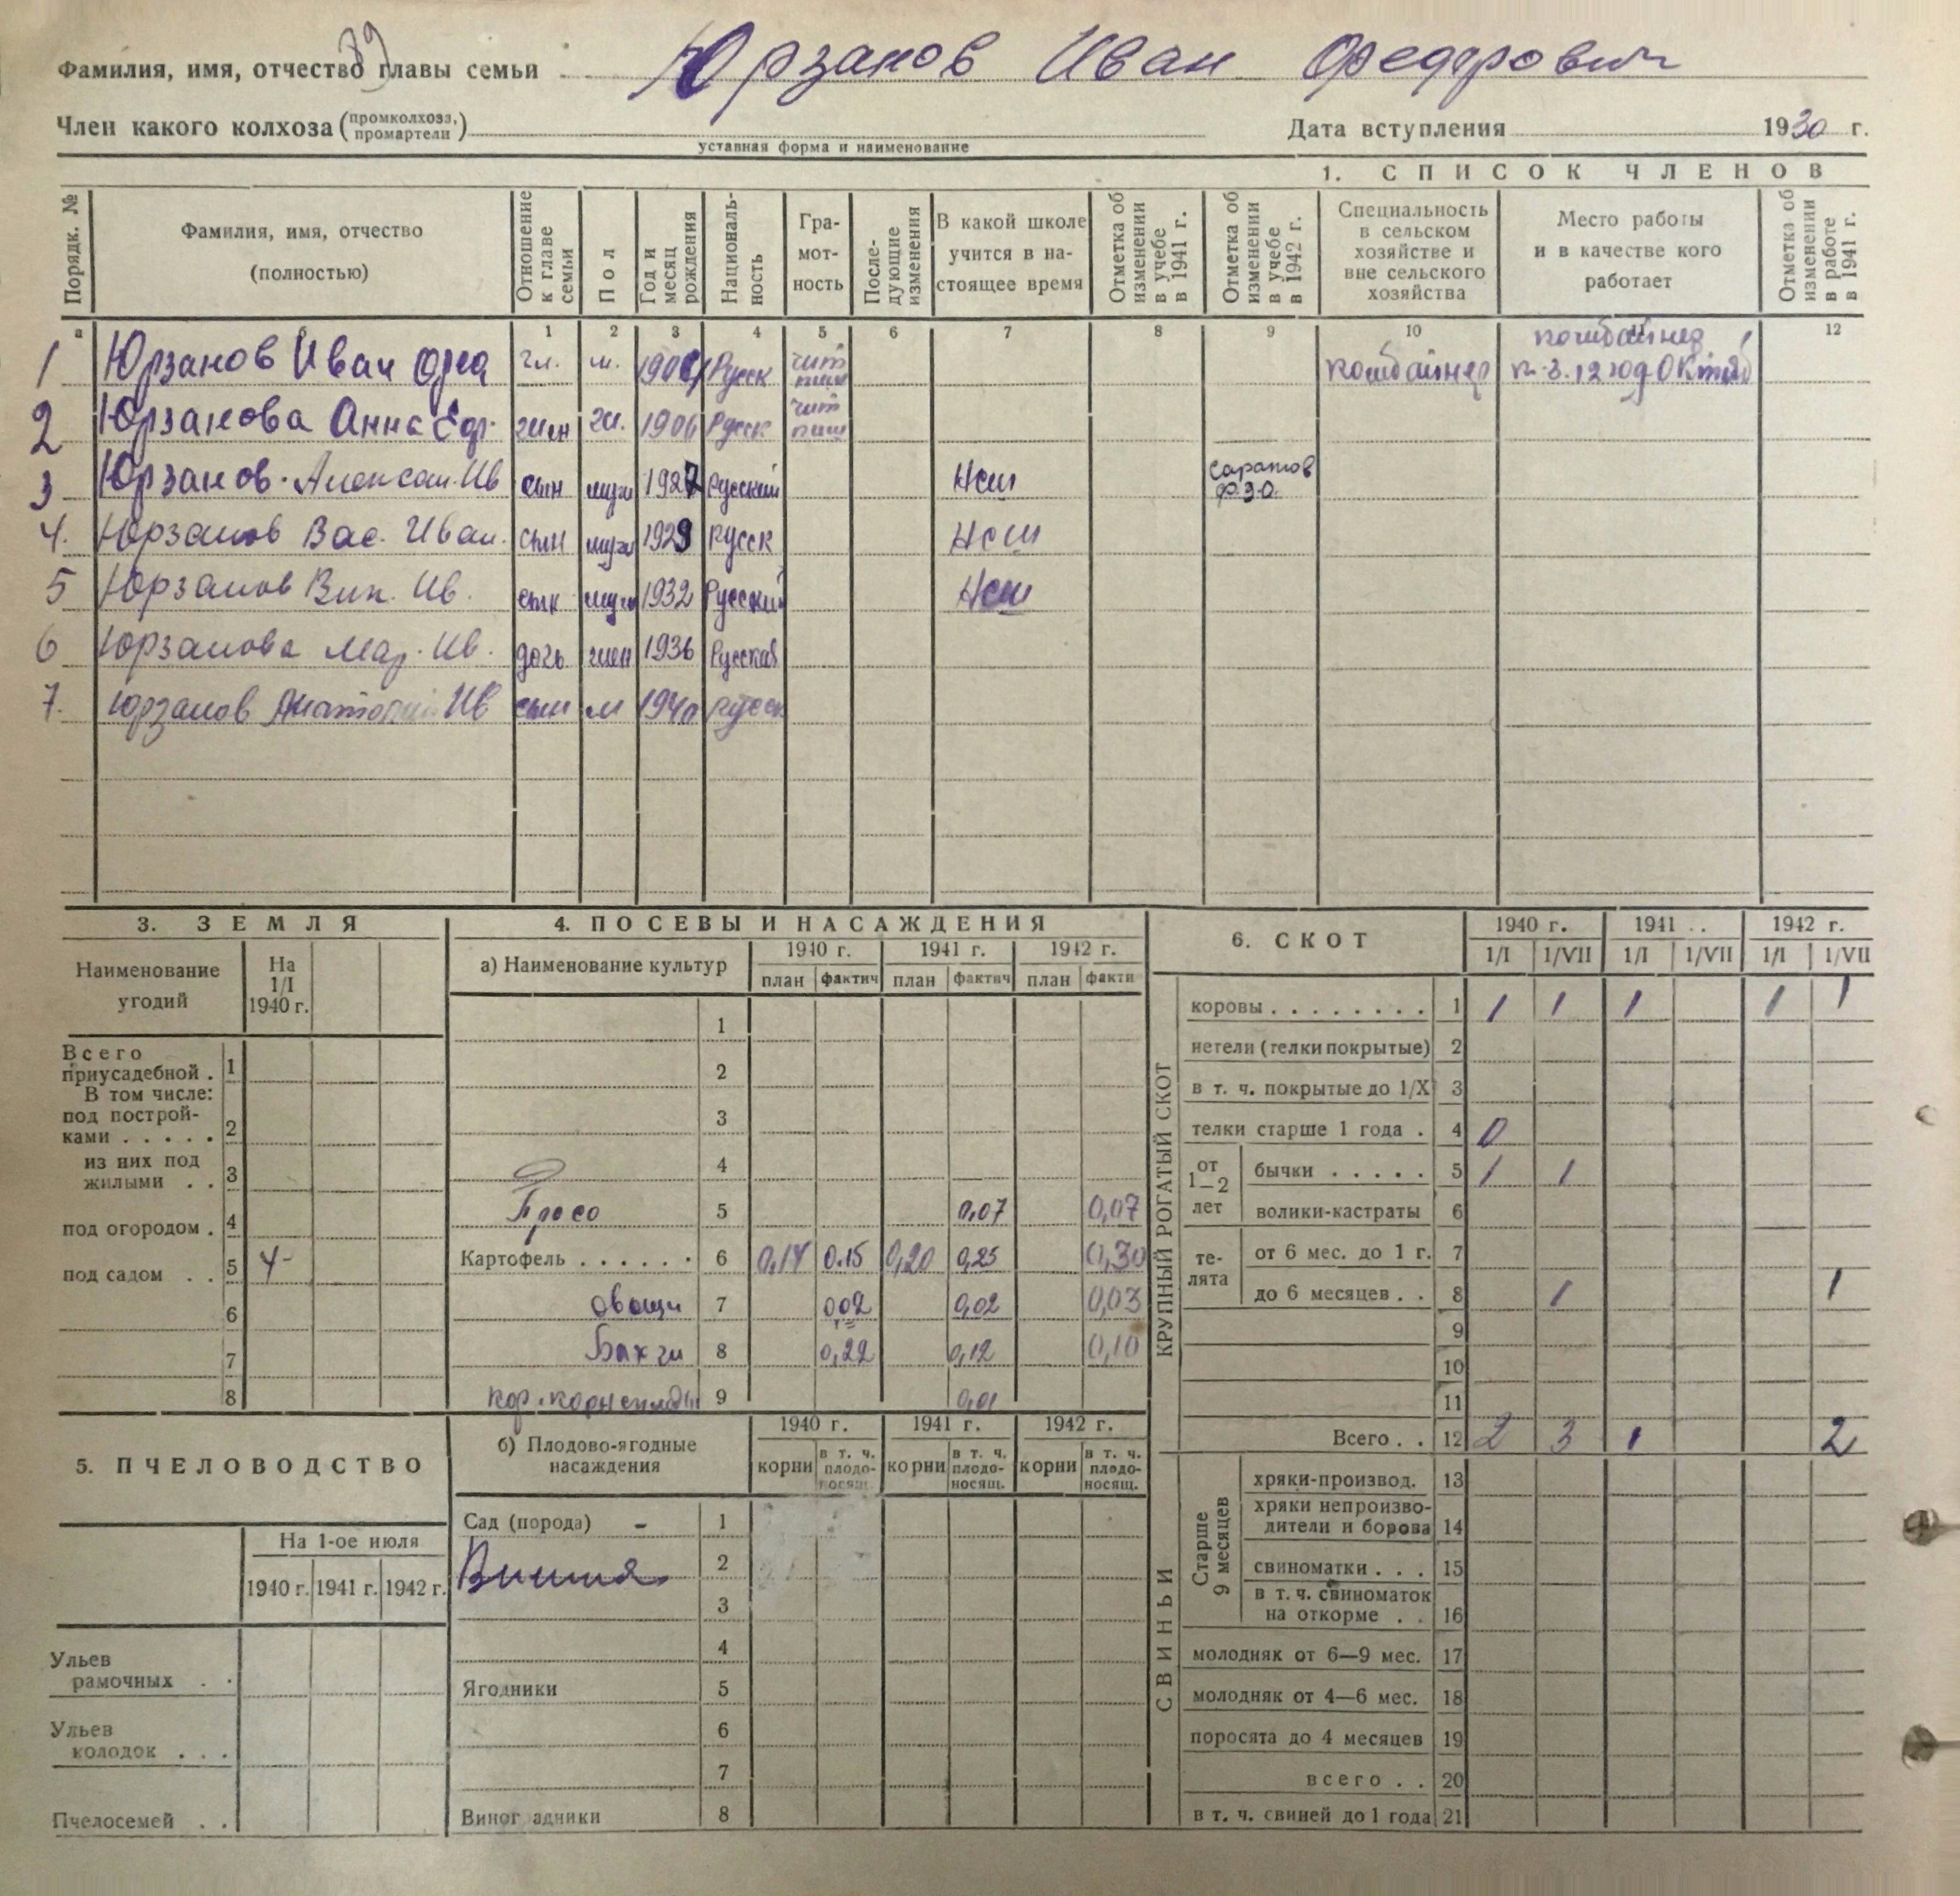 Фамилия, имя, отчество главы семьи Юрзанов Иван Федорович
Член какого колхоза (промколхоза, промартели)
уставная форма и наименование
Дата вступления 1930 г.
1. СПИСОК ЧЛЕНОВ
Порядк. №
Фамилия, имя, отчество (полностью)
Отношение к главе семьи
Пол
Год и месяц рождения
Националь-ность
Гра-мот-ность
После-дующие изменения
В какой школе учится в на-стоящее время
Отметка об изменении в учебе в 1941 г.
Отметка об изменении в учебе в 1942 г.
Специальность в сельском хозяйстве и вне сельского хозяйства
Место работы и в качестве кого работает
Отметка об изменении в работе в 1941 г.
а 1 2 3 4 5 6 7 8 9 10 12
1 Юрзанов Иван Фед гл. м. Русск чит пиш комбайнер комбайнер
2 Юрзанова Анна Еф. жен ж. 1906 Русск чит пиш
3 Юрзанов Александ. Ив сын муж 1927 Русский Нсш Саратов Ф.З.О.
4. Юрзанов Вас. Иван. сын муж 1929 Русск Нсш
5 Юрзанов Вик. Ив. сын муж 1932 Русский Нсш
6 Юрзанова Мар. Ив. дочь жен 1936 Русская
7. Юрзанов Анатолий Ив сын м 1940 русск
3. ЗЕМЛЯ
Наименование угодий
На 1/I 1940 г.
Всего приусадебной . 1
В том числе:
под построй-ками . . . . . 2
из них под жилыми . . 3
под огородом . 4
под садом . . 5
6
7
8
4. ПОСЕВЫ И НАСАЖДЕНИЯ
а) Наименование культур
1940 г. 1941 г. 1942 г.
план фактич план фактич план факти
1
2
3
4
Просо 5 0,07 0,07
Картофель . . . . . . 6 0,14 0.15 0,20 0,25 0,30
овощи 7 002 0,02 0,03
Бахчи 8 0,22 0,12 0,10
кор. корнеплоды 9 0,01
б) Плодово-ягодные насаждения
1940 г. 1941 г. 1942 г.
корни в т. ч. плодо-носящ. корни в т. ч. плодо-носящ. корни в т. ч. плодо-носящ.
Сад (порода) - 1
Вишня 2
3
4
Ягодники 5
6
7
Виног адники 8
5. ПЧЕЛОВОДСТВО
На 1-ое июля
1940 г. 1941 г. 1942 г.
Ульев рамочных . .
Ульев колодок . . .
Пчелосемей . .
6. СКОТ
1940 г. 1941 .. 1942 г.
1/I 1/VII 1/I 1/VII 1/I 1/VII
КРУПНЫЙ РОГАТЫЙ СКОТ
коровы . . . . . . . . 1 1 1 1 1 1
нетели (телки покрытые) 2
в т. ч. покрытые до 1/X 3
телки старше 1 года . 4 0
от 1—2 лет
бычки . . . . . 5 1 1
волики-кастраты 6
те-лята
от 6 мес. до 1 г. 7
до 6 месяцев . . 8 1 1
9
10
11
Всего . . 12 2 3 1 2
СВИНЬИ
Старше 9 месяцев
хряки-производ. 13
хряки непроизво-дители и борова 14
свиноматки . . . 15
в т. ч. свиноматок на откорме . . 16
молодняк от 6—9 мес. 17
молодняк от 4—6 мес. 18
поросята до 4 месяцев 19
всего . . 20
в т. ч. свиней до 1 года 21